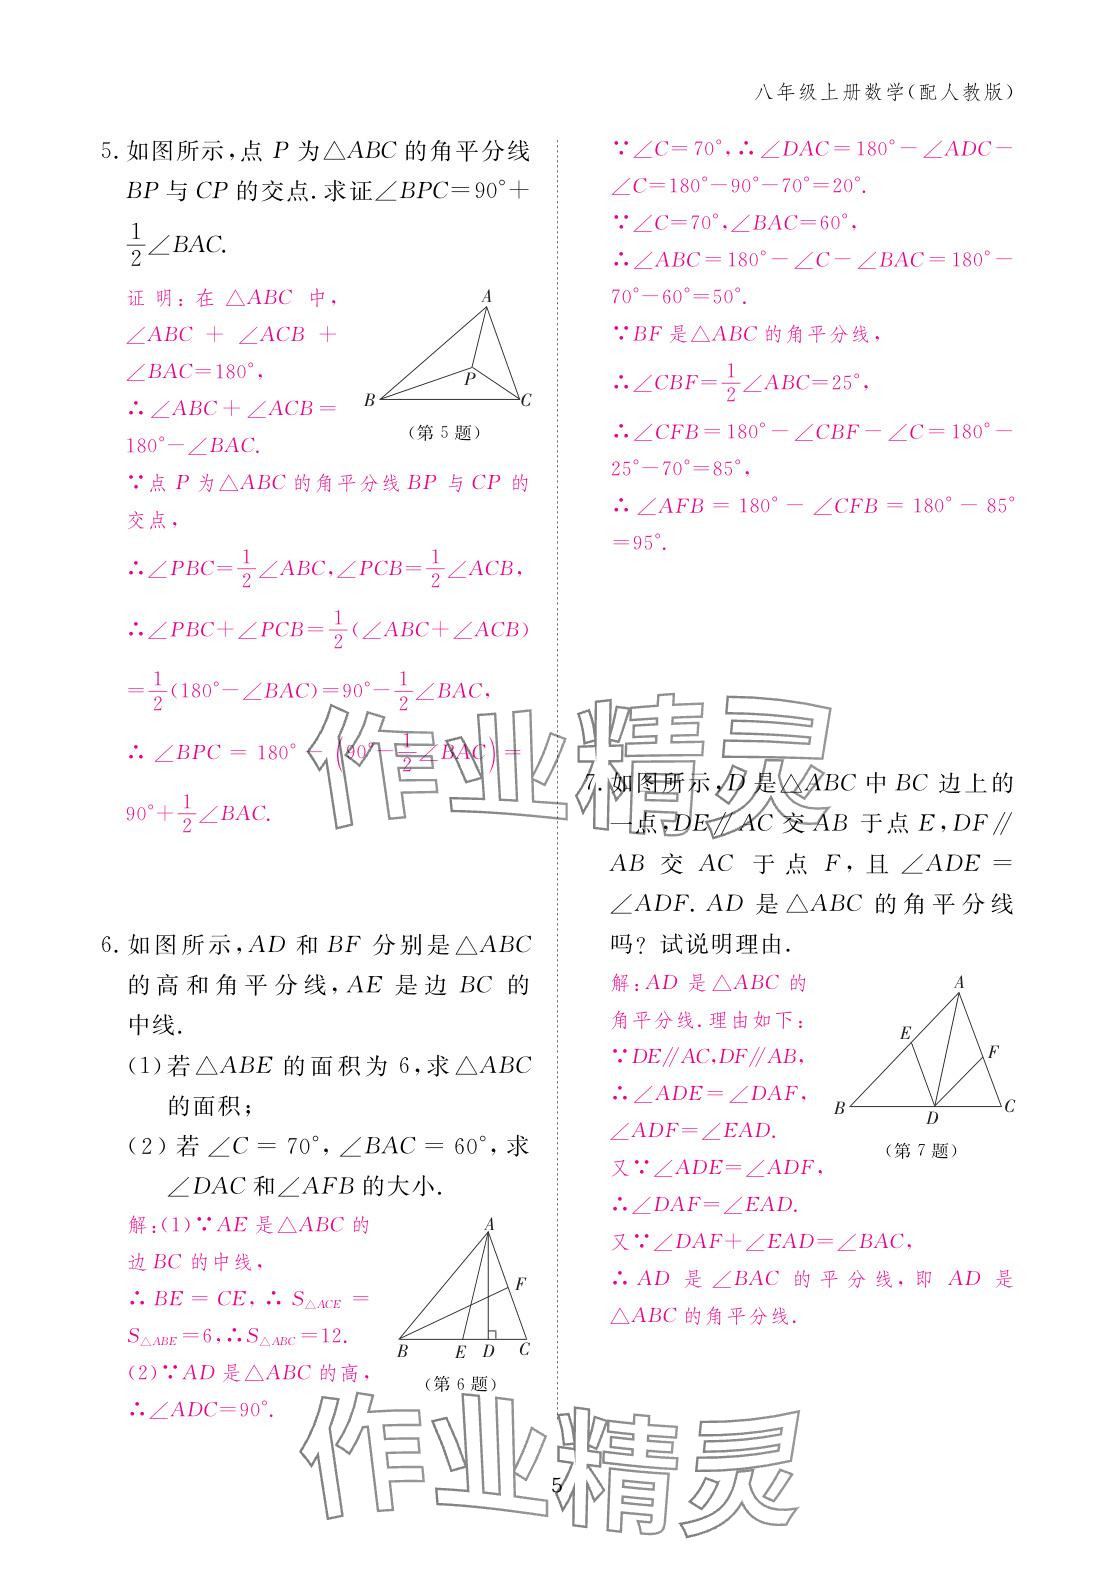 八年级上册数学(配人教版)
5. 如图所示,点 P 为△ABC 的角平分线
BP 与 CP 的交点. 求证∠BPC=90°+
1/2∠BAC.
证明:在 △ABC 中,
∠ABC + ∠ACB +
∠BAC=180°,
∴∠ABC+∠ACB=
180°-∠BAC.
∵点 P 为△ABC 的角平分线 BP 与 CP 的
交点,
∴∠PBC=1/2∠ABC,∠PCB=1/2∠ACB,
∴∠PBC+∠PCB=1/2(∠ABC+∠ACB)
=1/2(180°-∠BAC)=90°-1/2∠BAC,
∴ ∠BPC = 180° - (90°-1/2∠BAC) =
90°+1/2∠BAC.
A
P
B
C
(第 5 题)
6. 如图所示,AD 和 BF 分别是△ABC
的高和角平分线,AE 是边 BC 的
中线.
(1)若△ABE 的面积为 6,求△ABC
的面积;
(2)若∠C=70°,∠BAC=60°,求
∠DAC和∠AFB的大小.
解:(1)∵AE 是△ABC 的
边 BC 的中线,
∴ BE = CE, ∴ S△ACE =
S△ABE=6,∴S△ABC=12.
(2)∵AD 是△ABC 的高,
∴∠ADC=90°.
A
F
B
E
D
C
(第 6 题)
∵∠C=70°,∴∠DAC=180°-∠ADC-
∠C=180°-90°-70°=20°.
∵∠C=70°,∠BAC=60°,
∴∠ABC=180°-∠C-∠BAC=180°-
70°-60°=50°.
∵BF 是△ABC 的角平分线,
∴∠CBF=1/2∠ABC=25°,
∴∠CFB=180°-∠CBF-∠C=180°-
25°-70°=85°,
∴∠AFB = 180° - ∠CFB = 180° - 85°
=95°.
7. 如图所示,D 是△ABC 中 BC 边上的
一点,DE∥AC 交 AB 于点 E,DF∥
AB 交 AC 于点 F,且∠ADE=
∠ADF. AD 是△ABC 的角平分线
吗? 试说明理由.
解:AD 是△ABC 的
角平分线.理由如下:
∵DE∥AC,DF∥AB,
∴∠ADE=∠DAF,
∠ADF=∠EAD.
又∵∠ADE=∠ADF,
∴∠DAF=∠EAD.
又∵∠DAF+∠EAD=∠BAC,
∴ AD 是∠BAC 的平分线,即 AD 是
△ABC的角平分线.
A
E
F
B
D
C
(第 7 题)
作业精灵
作业精灵
5